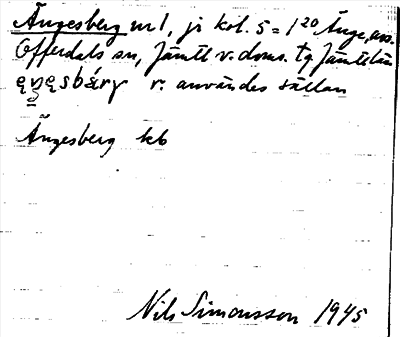 Ängesberg nr 1, jr kol. 5 = 1²⁰ Änge, av.
Offerdals sn, Jämtl v. doms. tg Jämtl län
ęŋęsbærγ v. användes sällan
Ängesberg kb
Nils Simonsson 1945